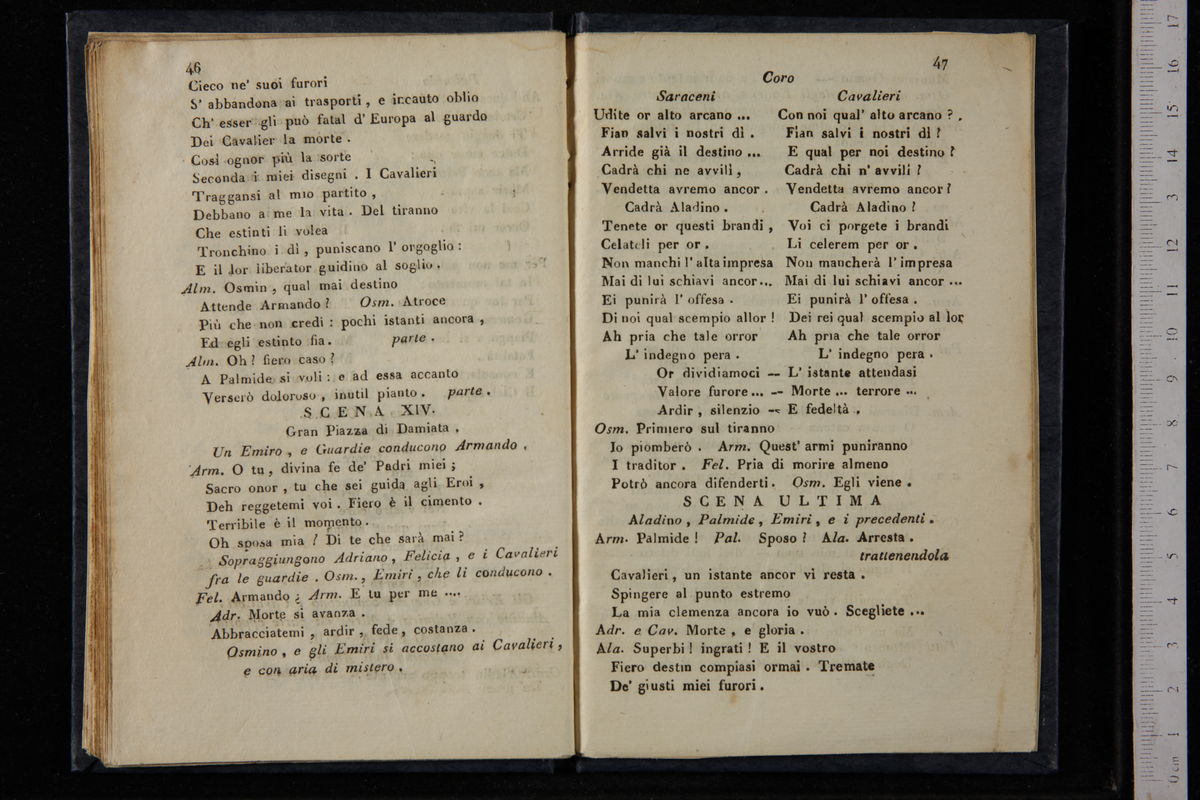 46
Cieco ne' suoi furori
S' abbandona ai trasporti , e incauto oblio
Ch' esser gli può fatal d' Europa al guardo
Dei Cavalier la morte .
Così ognor più la sorte
Seconda i miei disegni . I Cavalieri
Traggansi al mio partito ,
Debbano a me la vita . Del tiranno
Che estinti li volea
Tronchino i dì , puniscano l' orgoglio :
E il lor liberator guidino al soglio .
Alm. Osmin , qual mai destino
Attende Armando ? Osm. Atroce
Più che non credi : pochi istanti ancora ,
Ed egli estinto fia . parte .
Alm. Oh ? fiero caso ?
A Palmide si voli : e ad essa accanto
Verserò doloroso , inutil pianto . parte .
SCENA XIV.
Gran Piazza di Damiata .
Un Emiro , e Guardie conducono Armando .
Arm. O tu , divina fe de' Padri miei ;
Sacro onor , tu che sei guida agli Eroi ,
Deh reggetemi voi . Fiero è il cimento .
Terribile è il momento .
Oh sposa mia ! Di te che sarà mai ?
Sopraggiungono Adriano , Felicia , e i Cavalieri
fra le guardie . Osm. , Emiri , che li conducono .
Fel. Armando ; Arm. E tu per me ....
Adr. Morte si avanza .
Abbracciatemi , ardir , fede , costanza .
Osmino , e gli Emiri si accostano ai Cavalieri ,
e con aria di mistero .
47
Coro
Saraceni Cavalieri
Udite or alto arcano ... Con noi qual' alto arcano ? .
Fian salvi i nostri dì . Fian salvi i nostri dì ?
Arride già il destino ... E qual per noi destino ?
Cadrà chi ne avvilì , Cadrà chi n' avvilì ?
Vendetta avremo ancor . Vendetta avremo ancor ?
Cadrà Aladino . Cadrà Aladino ?
Tenete or questi brandi , Voi ci porgete i brandi
Celateli per or . Li celerem per or .
Non manchi l' alta impresa Non mancherà l' impresa
Mai di lui schiavi ancor... Mai di lui schiavi ancor ...
Ei punirà l' offesa . Ei punirà l' offesa .
Di noi qual scempio allor ! Dei rei qual scempio al lor
Ah pria che tale orror Ah pria che tale orror
L' indegno pera . L' indegno pera .
Or dividiamoci — L' istante attendasi
Valore furore ... — Morte ... terrore ...
Ardir , silenzio — E fedeltà .
Osm. Primiero sul tiranno
Io piomberò . Arm. Quest' armi puniranno
I traditor . Fel. Pria di morire almeno
Potrò ancora difenderti . Osm. Egli viene .
SCENA ULTIMA
Aladino , Palmide , Emiri , e i precedenti .
Arm. Palmide ! Pal. Sposo ? Ala. Arresta .
trattenendola
Cavalieri , un istante ancor vi resta .
Spingere al punto estremo
La mia clemenza ancora io vuò . Scegliete ...
Adr. e Cav. Morte , e gloria .
Ala. Superbi ! ingrati ! E il vostro
Fiero destin compiasi ormai . Tremate
De' giusti miei furori .
0 cm 1 2 3 4 5 6 7 8 9 10 11 12 3 14 15 16 17